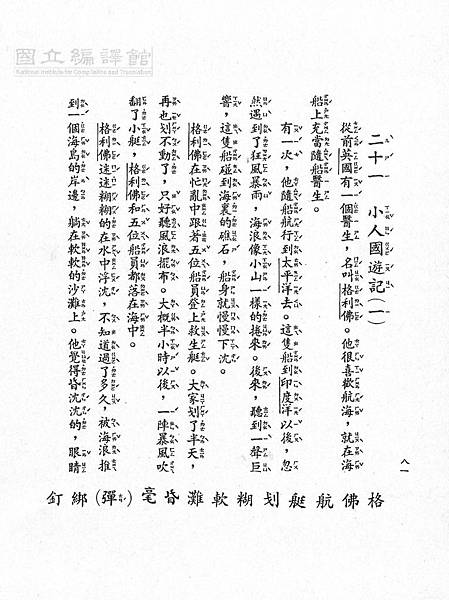 國立編譯館
National Institute for Compilation and Translation
二十一　小人國遊記(一)
從前英國有一個醫生，名叫格利佛。他很喜歡航海，就在海
船上充當隨船醫生。
有一次，他隨船航行到太平洋去。這隻船到印度洋以後，忽
然遇到了狂風暴雨，海浪像小山一樣的捲來。後來，聽到一聲巨
響，這隻船碰到海裏的礁石，船身就慢慢下沈。
格利佛在忙亂中跟著五位船員登上救生艇。大家划了半天，
再也划不動了，只好聽風浪擺布。大概半小時以後，一陣暴風吹
翻了小艇，格利佛和五位船員都落在海中。
格利佛迷迷糊糊的在水中浮沈，不知道過了多久，被海浪推
到一個海島的岸邊，躺在軟軟的沙灘上。他覺得昏沈沈的，眼睛
八一
格佛航艇划糊軟灘昏毫(彈)綁釘